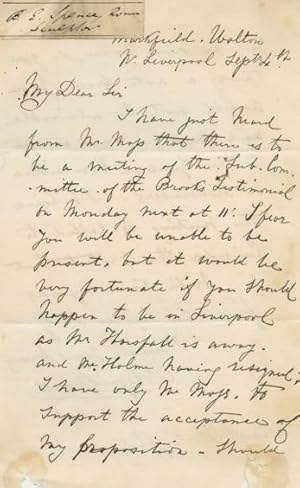 B. E. Spence Rome
Sculptor
Walton
Nr. Liverpool Sept 4th
My Dear Sir
I have just heard
from Mr. Moss that there is to
be a meeting of the Sub. Com
mittee of the Brooks Testimonial
on Monday next at 11. I fear
you will be unable to be
present, but it would be
very fortunate if you should
happen to be in Liverpool
as Mr Horsfall is away.
and Mr. Holme having resigned.
I have only Mr Moss. to
support the acceptance of
my proposition - Should